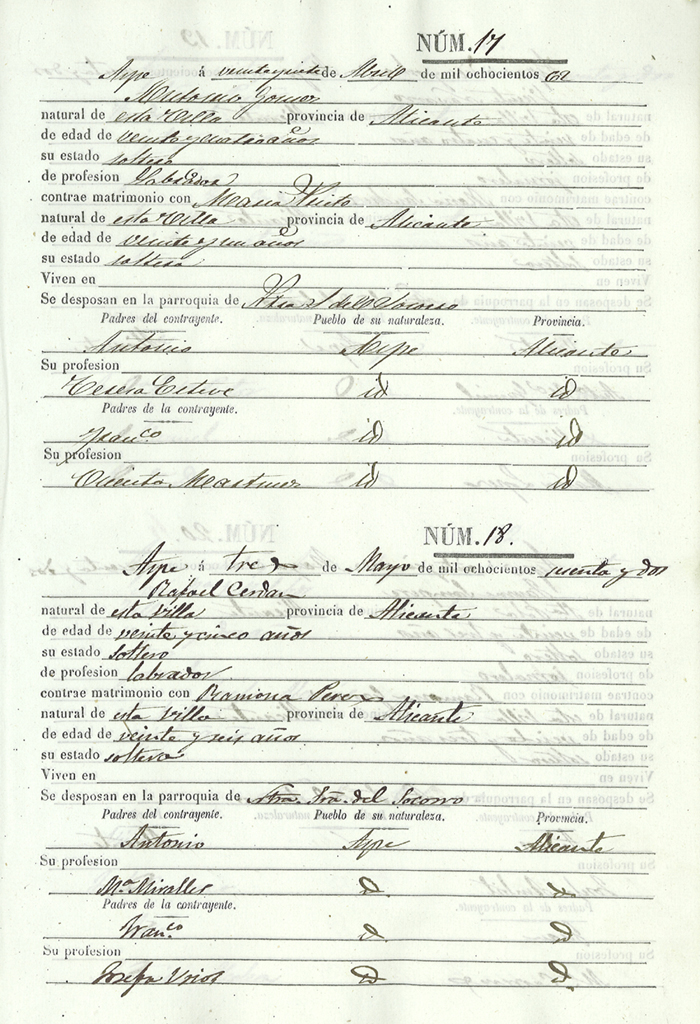 NÚM. 17
Aspe á veintisiete de Abril de mil ochocientos 62
Antonio Gomez
natural de esta Villa provincia de Alicante
de edad de veinte y cuatro años
su estado soltero
de profesion Labrador
contrae matrimonio con Maria
natural de esta Villa provincia de Alicante
de edad de veinte y un años
su estado soltera
Viven en
Se desposan en la parroquia de del Socorro
Padres del contrayente. Pueblo de su naturaleza. Provincia.
Antonio Aspe Alicante
Su profesion
Teresa Esteve id id
Padres de la contrayente.
Franco id id
Su profesion
Vicenta Martinez id id
NÚM. 18.
Aspe á tres de Mayo de mil ochocientos sesenta y dos
Rafael Cerdan
natural de esta villa provincia de Alicante
de edad de veinte y cinco años
su estado soltero
de profesion labrador
contrae matrimonio con Ramona Perez
natural de esta villa provincia de Alicante
de edad de veinte y seis años
su estado soltera
Viven en
Se desposan en la parroquia de Ntra. Sra. del Socorro
Padres del contrayente. Pueblo de su naturaleza. Provincia.
Antonio Aspe Alicante
Su profesion
Ma. Miralles id id
Padres de la contrayente.
Franco id id
Su profesion
Josefa Urios id id